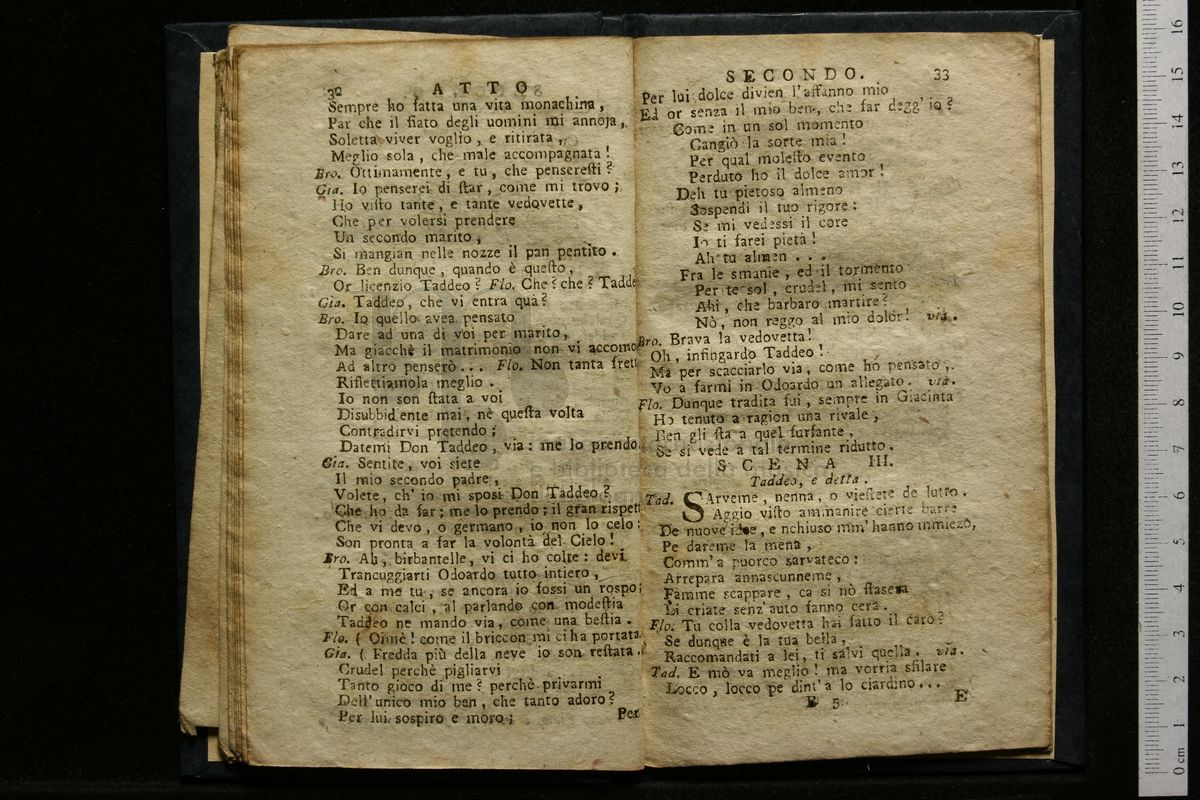 32 ATTO
Sempre ho fatta una vita monachina,
Par che il fiato degli uomini mi annoja,
Soletta viver voglio, e ritirata,
Meglio sola, che male accompagnata!
Bro. Ottimamente, e tu, che penseresti?
Gia. Io penserei di star, come mi trovo;
Ho visto tante, e tante vedovette,
Che per volersi prendere
Un secondo marito,
Si mangian nelle nozze il pan pentito.
Bro. Ben dunque, quando è questo,
Or licenzio Taddeo? Flo. Che? che? Tadde
Gia. Taddeo, che vi entra quà?
Bro. Io quello avea pensato
Dare ad una di voi per marito,
Ma giacchè il matrimonio non vi accomo
Ad altro penserò... Flo. Non tanta frett
Riflettiamola meglio.
Io non son stata a voi
Disubbidente mai, nè questa volta
Contradirvi pretendo;
Datemi Don Taddeo, via: me lo prendo
Gia. Sentite, voi siete
Il mio secondo padre,
Volete, ch' io mi sposi Don Taddeo?
Che ho da far; me lo prendo; il gran rispett
Che vi devo, o germano, io non lo celo:
Son pronta a far la volontà del Cielo!
Bro. Ah, birbantelle, vi ci ho colte: devi
Trancuggiarti Odoardo tutto intiero,
Ed a me tu, se ancora io fossi un rospo;
Or con calci, al parlando con modestia
Taddeo ne mando via, come una bestia.
Flo. ( Oimè! come il briccon mi ci ha portata
Gia. ( Fredda più della neve io son restata.
Crudel perchè pigliarvi
Tanto gioco di me? perchè privarmi
Dell' unico mio ben, che tanto adoro?
Per lui sospiro e moro;
Per
SECONDO. 33
Per lui dolce divien l'affanno mio
Ed or senza il mio ben, che far degg' io?
Come in un sol momento
Cangiò la sorte mia!
Per qual molesto evento
Perduto ho il dolce amor!
Deh tu pietoso almeno
Sospendi il tuo rigore:
Se mi vedessi il core
Io ti farei pietà!
Ah tu almen...
Fra le smanie, ed il tormento
Per te sol, crudel, mi sento
Ahi, che barbaro martire?
Nò, non reggo al mio dolor! via.
Bro. Brava la vedovetta!
Oh, infingardo Taddeo!
Ma per scacciarlo via, come ho pensato,
Vo a farmi in Odoardo un allegato. via.
Flo. Dunque tradita fui, sempre in Giacinta
Ho tenuto a ragion una rivale,
Ben gli sta a quel furfante,
Se si vede a tal termine ridutto.
SCENA III.
Taddeo, e detta.
Tad. SArveme, nenna, o viestete de lutto.
Aggio visto ammanire cierte barre
De nuove idee, e nchiuso mm' hanno mmiezo,
Pe dareme la mena,
Comm'a puorco sarvateco:
Arrepara annascunneme,
Famme scappare, ca si nò stasera
Li criate senz' auto fanno cera.
Flo. Tu colla vedovetta hai fatto il caro?
Se dunque è la tua bella,
Raccomandati a lei, ti salvi quella. via.
Tad. E mò va meglio! ma vorria sfilare
Locco, locco pe dint' a lo ciardino...
B 5 E